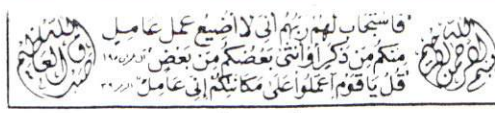 بسم الله الرحمن الرحيم
"فاستجاب لهم ربهم أنى لا أضيع عمل عامل
منكم من ذكر أو أنثى بعضكم من بعض" آل عمران ١٩٥
"قل يا قوم اعملوا على مكانتكم إنى عامل" الزمر ٣٩
صدق الله العظيم